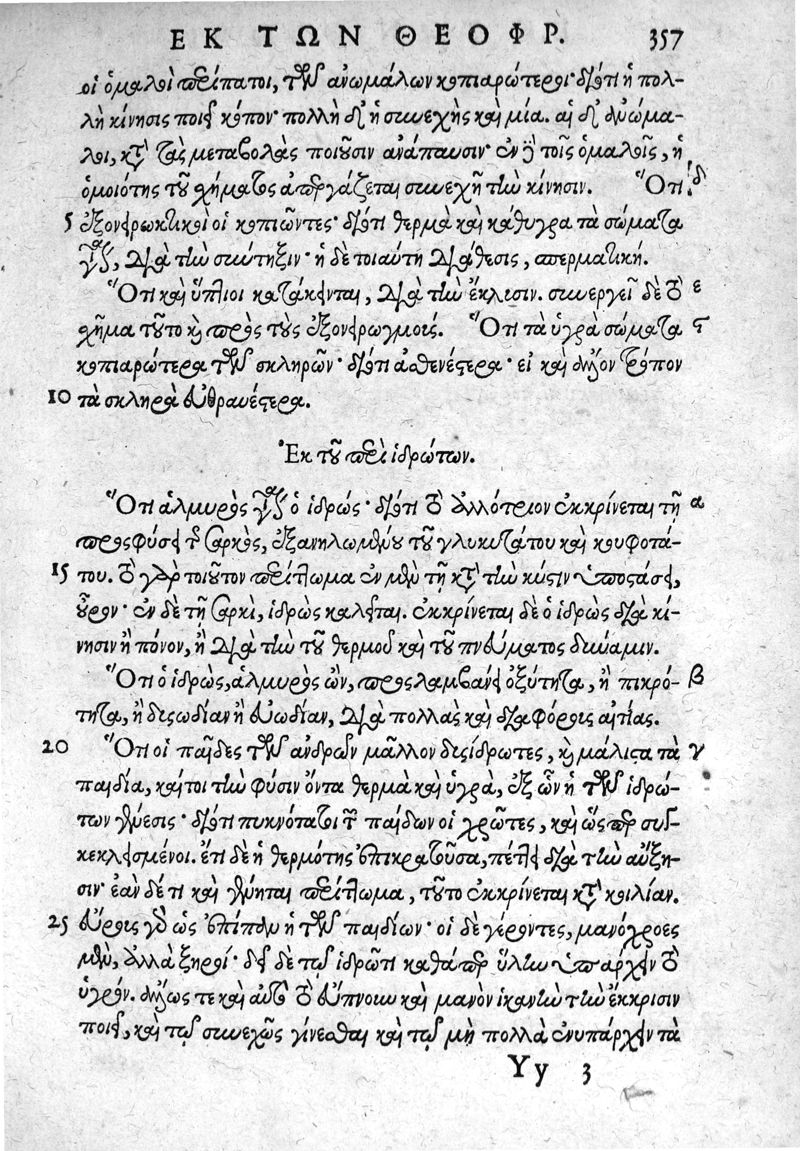 ΕΚ ΤΩΝ ΘΕΟΦΡ. 357
οἱ ὁμαλοὶ περίπατοι, τῶν ἀνωμάλων κοπιαρώτεροι· διότι ἡ πολ-
λὴ κίνησις ποιεῖ κόπον· πολλὴ δ' ἡ συνεχὴς καὶ μία. αἱ δ' ἀνώμα-
λοι, κατὰ τὰς μεταβολὰς ποιοῦσιν ἀνάπαυσιν· ἐν δὲ τοῖς ὁμαλοῖς, ἡ
ὁμοιότης τοῦ σχήματος ἀπεργάζεται συνεχῆ τὴν κίνησιν. Ὅτι δ
5 ἐξονειρωκτικοὶ οἱ κοπιῶντες· διότι θερμὰ καὶ κάθυγρα τὰ σώματα
γίνεται, διὰ τὴν σύντηξιν· ἡ δὲ τοιαύτη διάθεσις, σπερματική.
Ὅτι καὶ ὕπτιοι κατάκεινται, διὰ τὴν ἔκλισιν. συνεργεῖ δὲ τὸ ε
σχῆμα τοῦτο καὶ πρὸς τοὺς ἐξονειρωγμούς. Ὅτι τὰ ὑγρὰ σώματα ϛ
κοπιαρώτερα τῶν σκληρῶν· διότι ἀσθενέστερα· εἰ καὶ ἄλλον τρόπον
10 τὰ σκληρὰ εὐθραυέστερα.
Ἐκ τοῦ περὶ ἱδρώτων.
Ὅτι ἁλμυρὸς γίνεται ὁ ἱδρώς· διότι τὸ ἀλλότριον ἐκκρίνεται τῇ α
προσφύσει τῆς σαρκὸς, ἐξανηλωμένου τοῦ γλυκυτάτου καὶ κουφοτά-
15 του. τὸ γὰρ τοιοῦτον περίττωμα ἐν μὲν τῇ κατὰ τὴν κύστιν ὑποστάσει,
οὖρον· ἐν δὲ τῇ σαρκὶ, ἱδρὼς καλεῖται. ἐκκρίνεται δὲ ὁ ἱδρὼς διὰ κί-
νησιν ἢ πόνον, ἢ διὰ τὴν τοῦ θερμοῦ καὶ τοῦ πνεύματος δύναμιν.
Ὅτι ὁ ἱδρὼς, ἁλμυρὸς ὢν, προσλαμβάνει ὀξύτητα, ἢ πικρό- β
τητα, ἢ δυσωδίαν ἢ εὐωδίαν, διὰ πολλὰς καὶ διαφόρους αἰτίας.
20 Ὅτι οἱ παῖδες τῶν ἀνδρῶν μᾶλλον δυσίδρωτες, καὶ μάλιστα τὰ γ
παιδία, καίτοι τὴν φύσιν ὄντα θερμὰ καὶ ὑγρὰ, ἐξ ὧν ἡ τῶν ἱδρώ-
των γένεσις· διότι πυκνότατοι τῶν παίδων οἱ χρῶτες, καὶ ὥσπερ συγ-
κεκλεισμένοι. ἔτι δὲ ἡ θερμότης ἐπικρατοῦσα, πέττει διὰ τὴν αὔξη-
σιν· ἐὰν δέ τι καὶ γένηται περίττωμα, τοῦτο ἐκκρίνεται κατὰ κοιλίαν.
25 εὔρους γὰρ ὡς ἐπίπαν ἡ τῶν παιδίων· οἱ δὲ γέροντες, μανόχροες
μὲν, ἀλλὰ ξηροί· δεῖ δὲ τῷ ἱδρῶτι καθάπερ ὕλην ὑπάρχειν τὸ
ὑγρόν. ἄλλως τε καὶ αὐτὸ τὸ εὔπνουν καὶ μανὸν ἱκανὴν τὴν ἔκκρισιν
ποιεῖ, καὶ τῷ συνεχῶς γίνεσθαι καὶ τῷ μὴ πολλὰ ἐνυπάρχειν τὰ
Yy 3